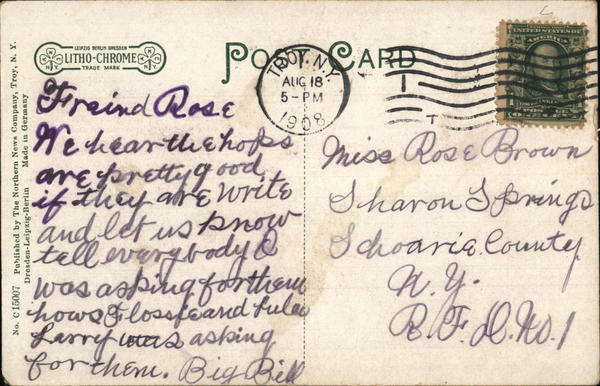 No. C15007 Published by The Northern News Company, Troy, N. Y.
Dresden-Leipzig-Berlin Made in Germany
LEIPZIG BERLIN DRESDEN
LITHO-CHROME
TRADE MARK
POST CARD
TROY, N.Y.
AUG 18
5-PM
1908
UNITED STATES OF
AMERICA
Freind Rose
We hear the hops
are pretty good
if they are write
and let us know
tell everybody I
was asking for them
hows Flossie and
Larry was asking
for them. Big Bill
Miss Rose Brown
Sharon Springs
Schoarie County
N.Y.
R.F.D. No. 1